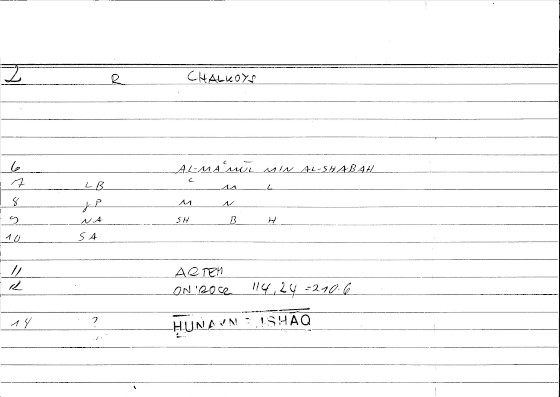 2 R CHALKOYS
6 AL-MAʿMŪL MIN AL-SHABAH
7 LB ʿ M L
8 JP M N
9 NA SH B H
10 SA
11 ARTEM
12 ONIROCR 114,24 = 210.6
14 ? ḤUNAYN = ISHAQ